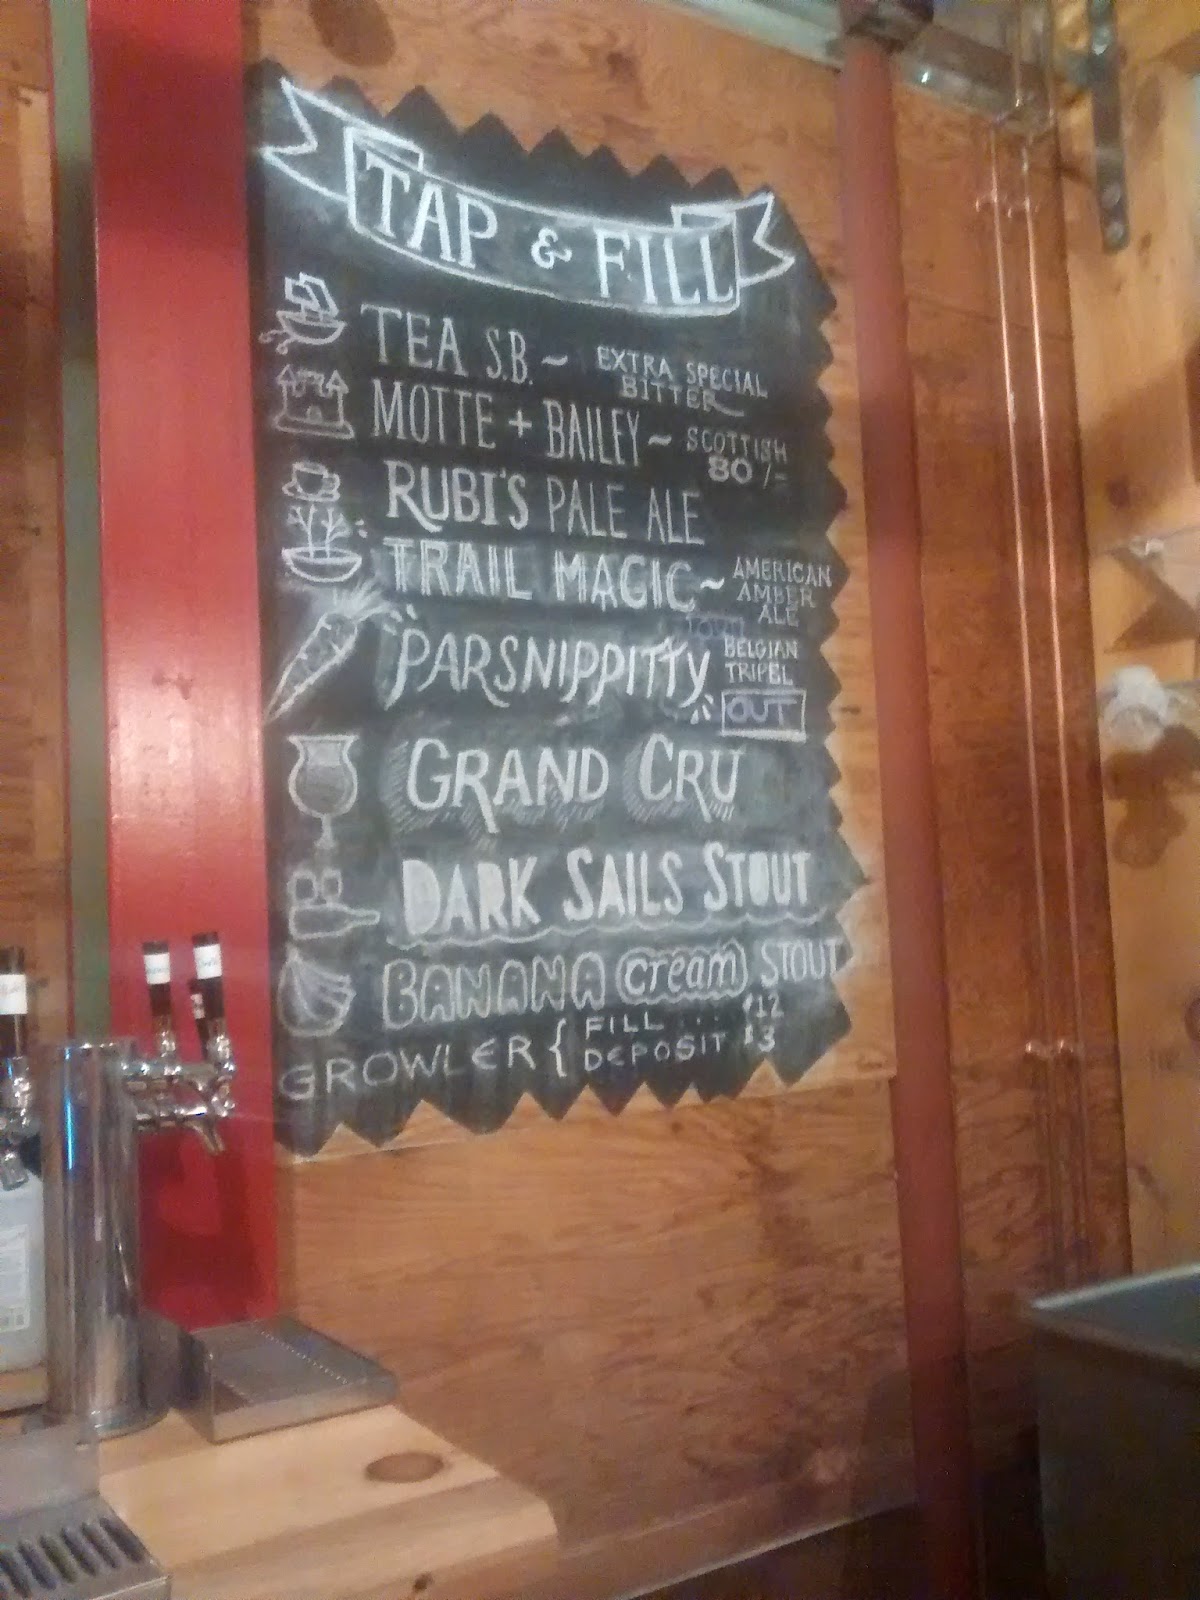 TAP & FILL
TEA S.B. ~ EXTRA SPECIAL
BITTER
MOTTE + BAILEY ~ SCOTTISH
80 /-
RUBI'S PALE ALE
TRAIL MAGIC ~ AMERICAN
AMBER
ALE
PARSNIPPITTY BELGIAN
TRIPEL
OUT
GRAND CRU
DARK SAILS STOUT
BANANA cream STOUT
GROWLER { FILL ... $12
DEPOSIT $3